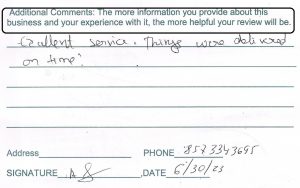 Additional Comments: The more information you provide about this
business and your experience with it, the more helpful your review will be.
Exallent service. Things were delivered
on time!
Address PHONE 857 334 3695
SIGNATURE ,DATE 6/30/23